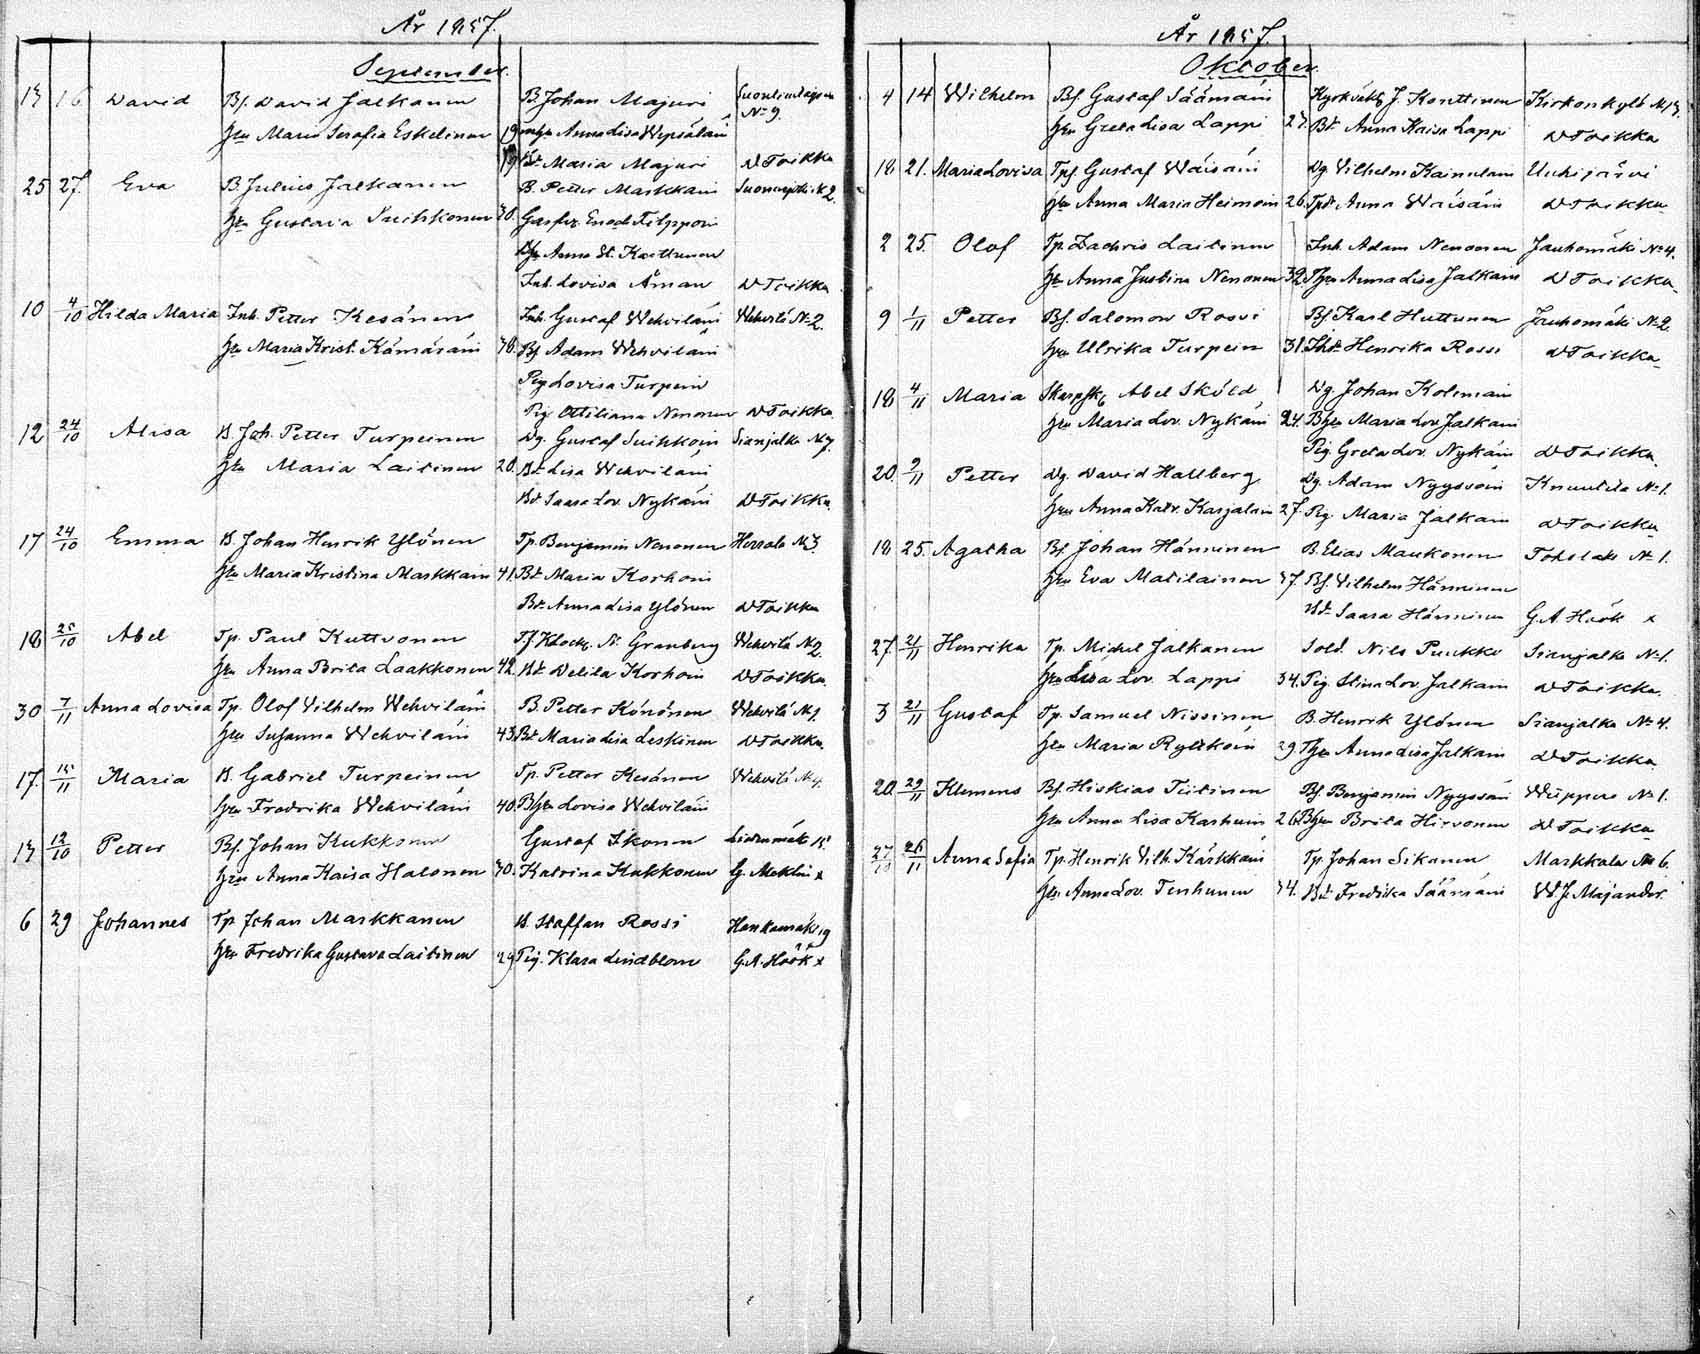 År 1857.
September.
13 16 David Bf. David Jalkanen B. Johan Majuri
No 9.
Hu Maria Serafia Eskelinen 19 Anna Lisa Wepsäläin
Bd Maria Majuri D Toikka
25 27. Eva B. Julius Jalkanen B. Petter Markkain No 2.
Hu Gustava Suihkonen 30. Enoch Filppoin
Anna St. Karttunen
Inh. Lovisa Åman D Toikka
10 4/10 Hilda Maria Inh. Petter Kesänen Inh. Gustaf Wehviläin Wehvilä No 2.
Hu Maria Krist. Kämäräin 38. Bf Adam Wehviläin
Pig Lovisa Turpein
Pig. Ottiliana Nenonen D Toikka
12 24/10 Alisa B. Joh. Petter Turpeinen Dg. Gustaf Suihkoin Sianjalka No 7.
Hu Maria Laitinen 20. Bd. Lisa Wehviläin
Bd. Saara Lov. Nykäin D Toikka.
17 24/10 Emma B. Johan Henrik Ylönen Tp. Benjamin Nenonen Herrala No 3.
Hu Maria Kristina Markkain 41. Bd Maria Korhoin
Bd. Anna Lisa Ylönen D Toikka
18 25/10 Abel Tp. Paul Kuttvonen Granberg Wehvilä No 2.
Hu Anna Brita Laakkonen 42. Bd Delila Korhoin D Toikka.
30 7/11 Anna Lovisa Tp. Olof Vilhelm Wehviläin B. Petter Könönen Wehvilä No 1.
Hu Susanna Wehviläin 43. Bd. Maria Lisa Leskinen D Toikka.
17. 15/11 Maria B. Gabriel Turpeinen Tp. Petter Kesänen Wehvilä No 4.
Hu Fredrika Wehviläin 40. Bhu Lovisa Wehviläin
13 12/10 Petter Bf. Johan Kukkonen Gustaf Ikonen
Hu Anna Kaisa Halonen 30. Katrina Kukkonen G. Meklin x
6 29 Johannes Tp Johan Markkanen B. Staffan Rossi Honkamäki 9
Hu Fredrika Gustava Laitinen 29 Pig. Klara Lindblom G. A. Höök x
År 1857.
Oktober.
4 14 Wilhelm Bf. Gustaf Säämäin J. Konttinen Kirkonkylä No 13.
Hu Greta Lisa Lappi 27. Bd. Anna Kaisa Lappi D Toikka
18 21. Maria Lovisa Tpf. Gustaf Wäisäin Dg. Vilhelm Kainulain Uuhijärvi
Hu Anna Maria Heimoin 26. Tpd. Anna Wäisäin D Toikka
2 25. Olof Tp. Zachris Laitinen Inh. Adam Nenonen Jauhomäki No 4.
Hu Anna Justina Nenonen 32. Thu Anna Lisa Jalkain D Toikka.
9 1/11 Petter Bf. Salomon Rossi Bf Karl Huttunen Jauhomäki No 2.
Hu Ulrika Turpein 31. Henrika Rossi D Toikka
18 4/11 Maria Abel Sköld Dg. Johan Kolmain
Hu Maria Lov. Nykäin 24. Bhu Maria Lov Jalkain
Pig. Greta Lov. Nykäin D Toikka.
20. 9/11 Petter Dg. David Hallberg Dg. Adam Nyyssöin Knuutila No 1.
Hu Anna Katr. Karjalain 27. Pig. Maria Jalkain D Toikka
18 25. Agatha Bf. Johan Hänninen B. Elias Maukonen No 1.
Hu Eva Matilainen 37. Bf. Vilhelm Hänninen
Bd. Saara Hänninen G. A Höök x
27. 21/11 Henrika Tp. Michel Jalkanen Sold. Nils Puukko Sianjalka No 1.
Hu Lisa Lov. Lappi 34. Pig. Stina Lov. Jalkain D Toikka.
3 21/11 Gustaf Tp. Samuel Nissinen B. Henrik Ylönen Sianjalka No 4.
Hu Maria Rytkoin 29. Thu Anna Lisa Jalkain D Toikka
20. 29/11 Klemens Bf. Hiskias Tiitinen Bf Benjamin Nyyssöin No 1.
Hu Anna Lisa Karhuin 26. Bhu Brita Hirvonen D Toikka
27/10 26/11 Anna Sofia Tp. Henrik Vilh. Kärkkäin Tp. Johan Sikanen Markkala No 6.
Hu Anna Lov. Tenhunen 34. Bd Fredrika Säämäin W. J. Majander.